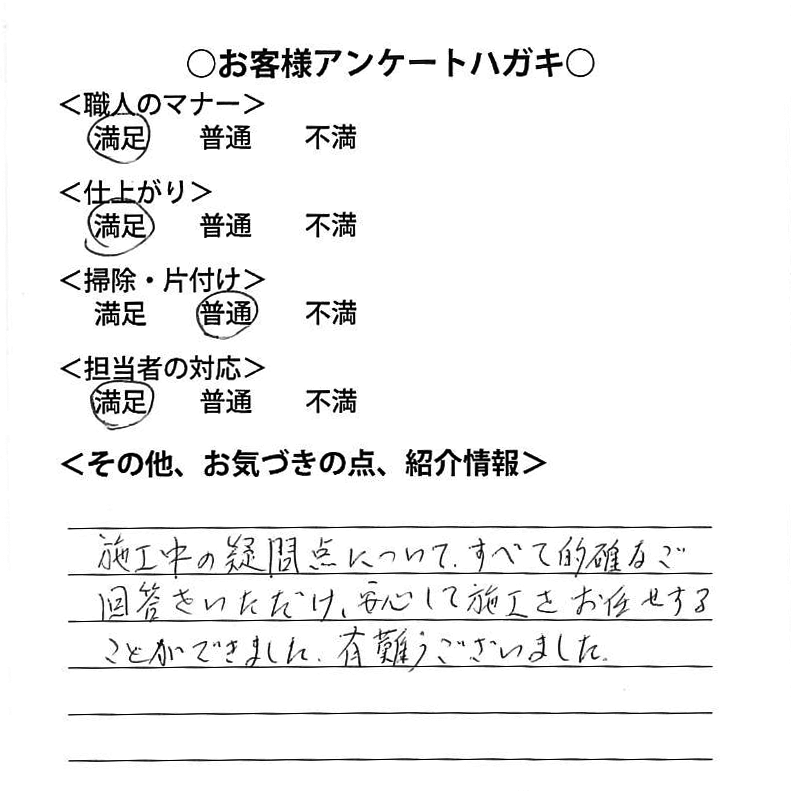 ○お客様アンケートハガキ○
＜職人のマナー＞
満足 普通 不満
＜仕上がり＞
満足 普通 不満
＜掃除・片付け＞
満足 普通 不満
＜担当者の対応＞
満足 普通 不満
＜その他、お気づきの点、紹介情報＞
施工中の疑問点について、すべて的確なご
回答をいただけ、安心して施工をお任せする
ことができました。有難うございました。